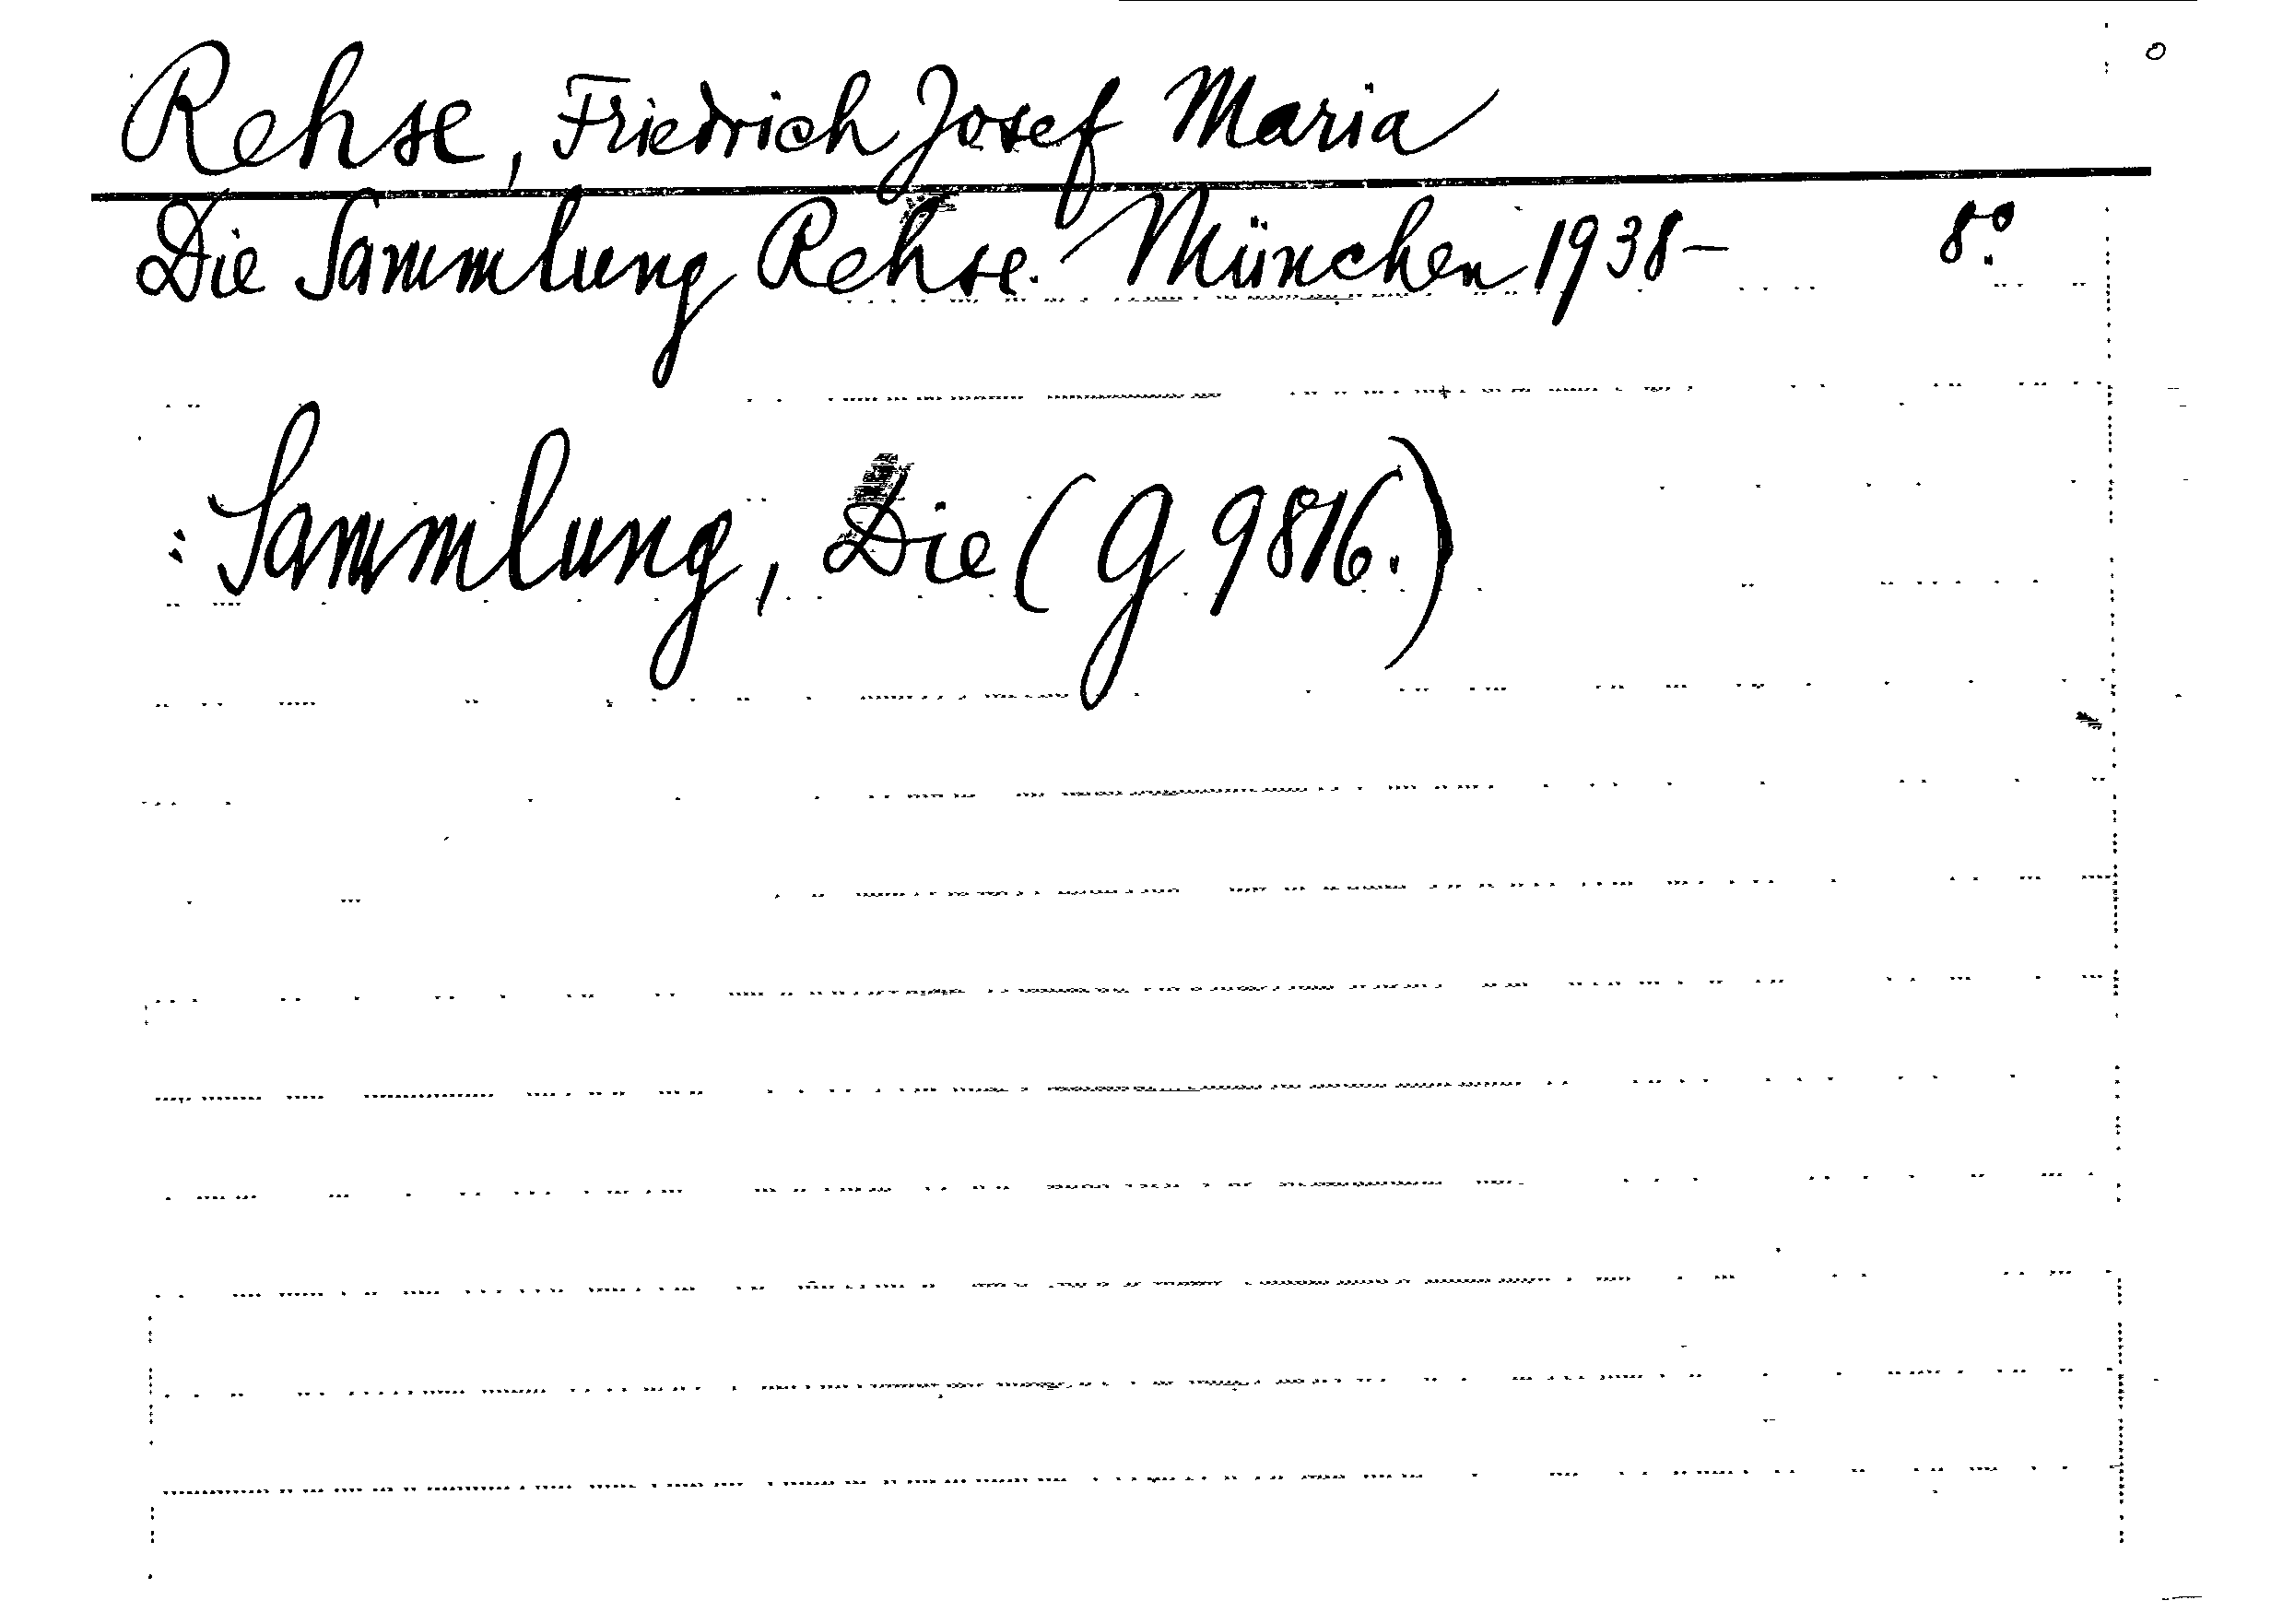 Rehse, Friedrich Josef Maria
Die Sammlung Rehse. München 1938- 8°.
: Sammlung, Die (G 9816.)